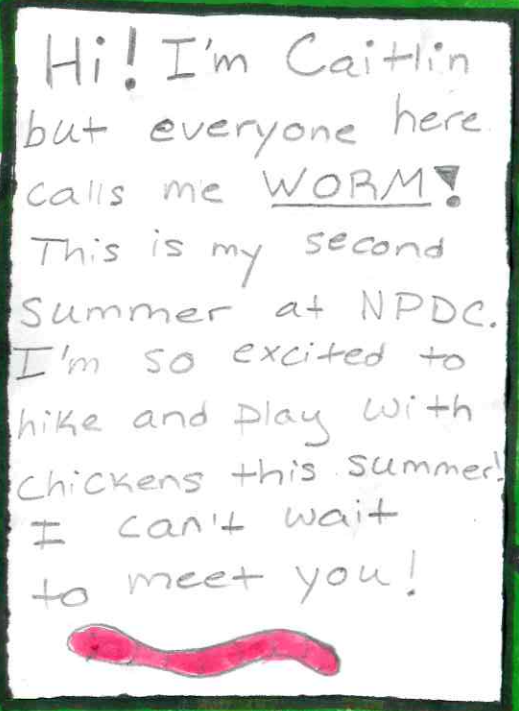 Hi! I'm Caitlin
but everyone here
calls me WORM!
This is my second
Summer at NPDC.
I'm so excited to
hike and play with
chickens this summer!
I can't wait
to meet you!